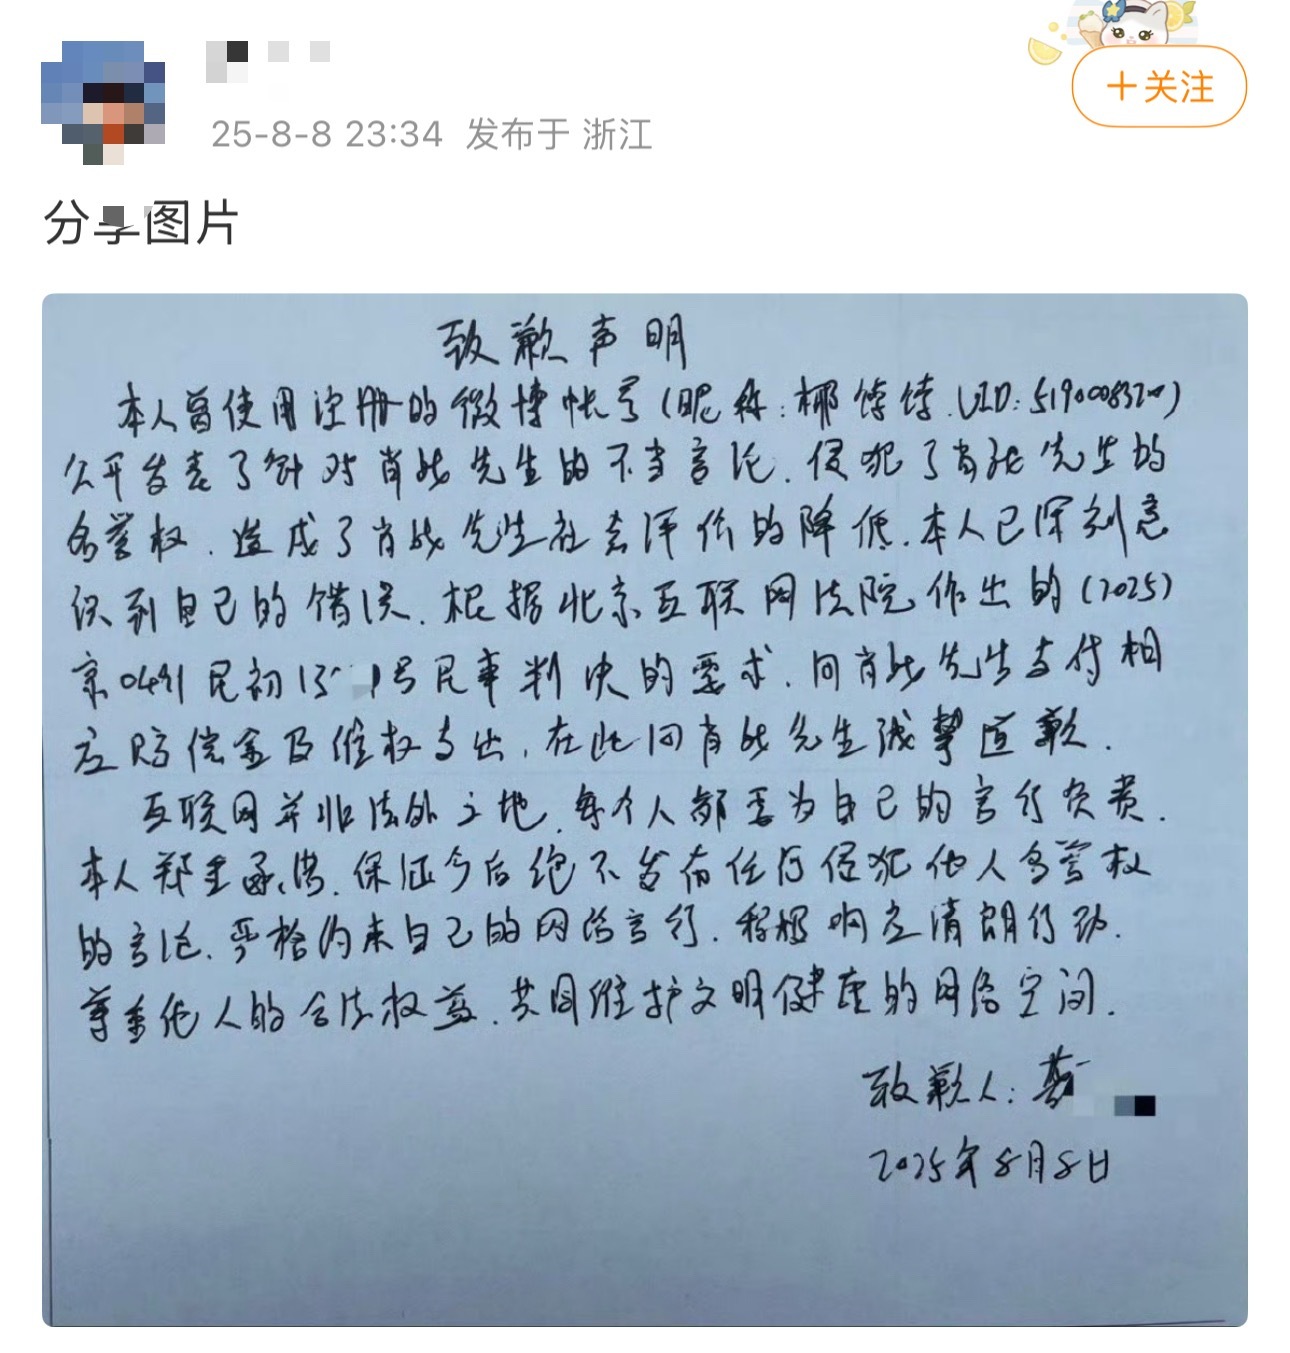 25-8-8 23:34 发布于 浙江
+关注
分享图片
致歉声明
本人曾使用注册的微博帐号(昵称:椰饽饽.UID:
公开发表了针对肖战先生的不当言论.侵犯了肖战先生的
名誉权.造成了肖战先生社会评价的降低.本人已深刻意
识到自己的错误.根据北京互联网法院作出的(2025)
京0491民初15 1号民事判决的要求.向肖战先生支付相
应赔偿金及维权支出,在此向肖战先生诚挚道歉.
互联网并非法外之地.每个人都要为自己的言行负责.
本人郑重承诺.保证今后绝不发布任何侵犯他人名誉权
的言论.严格约束自己的网络言行.积极响应清朗行动.
尊重他人的合法权益.共同维护文明健康的网络空间.
致歉人:
2025年8月8日